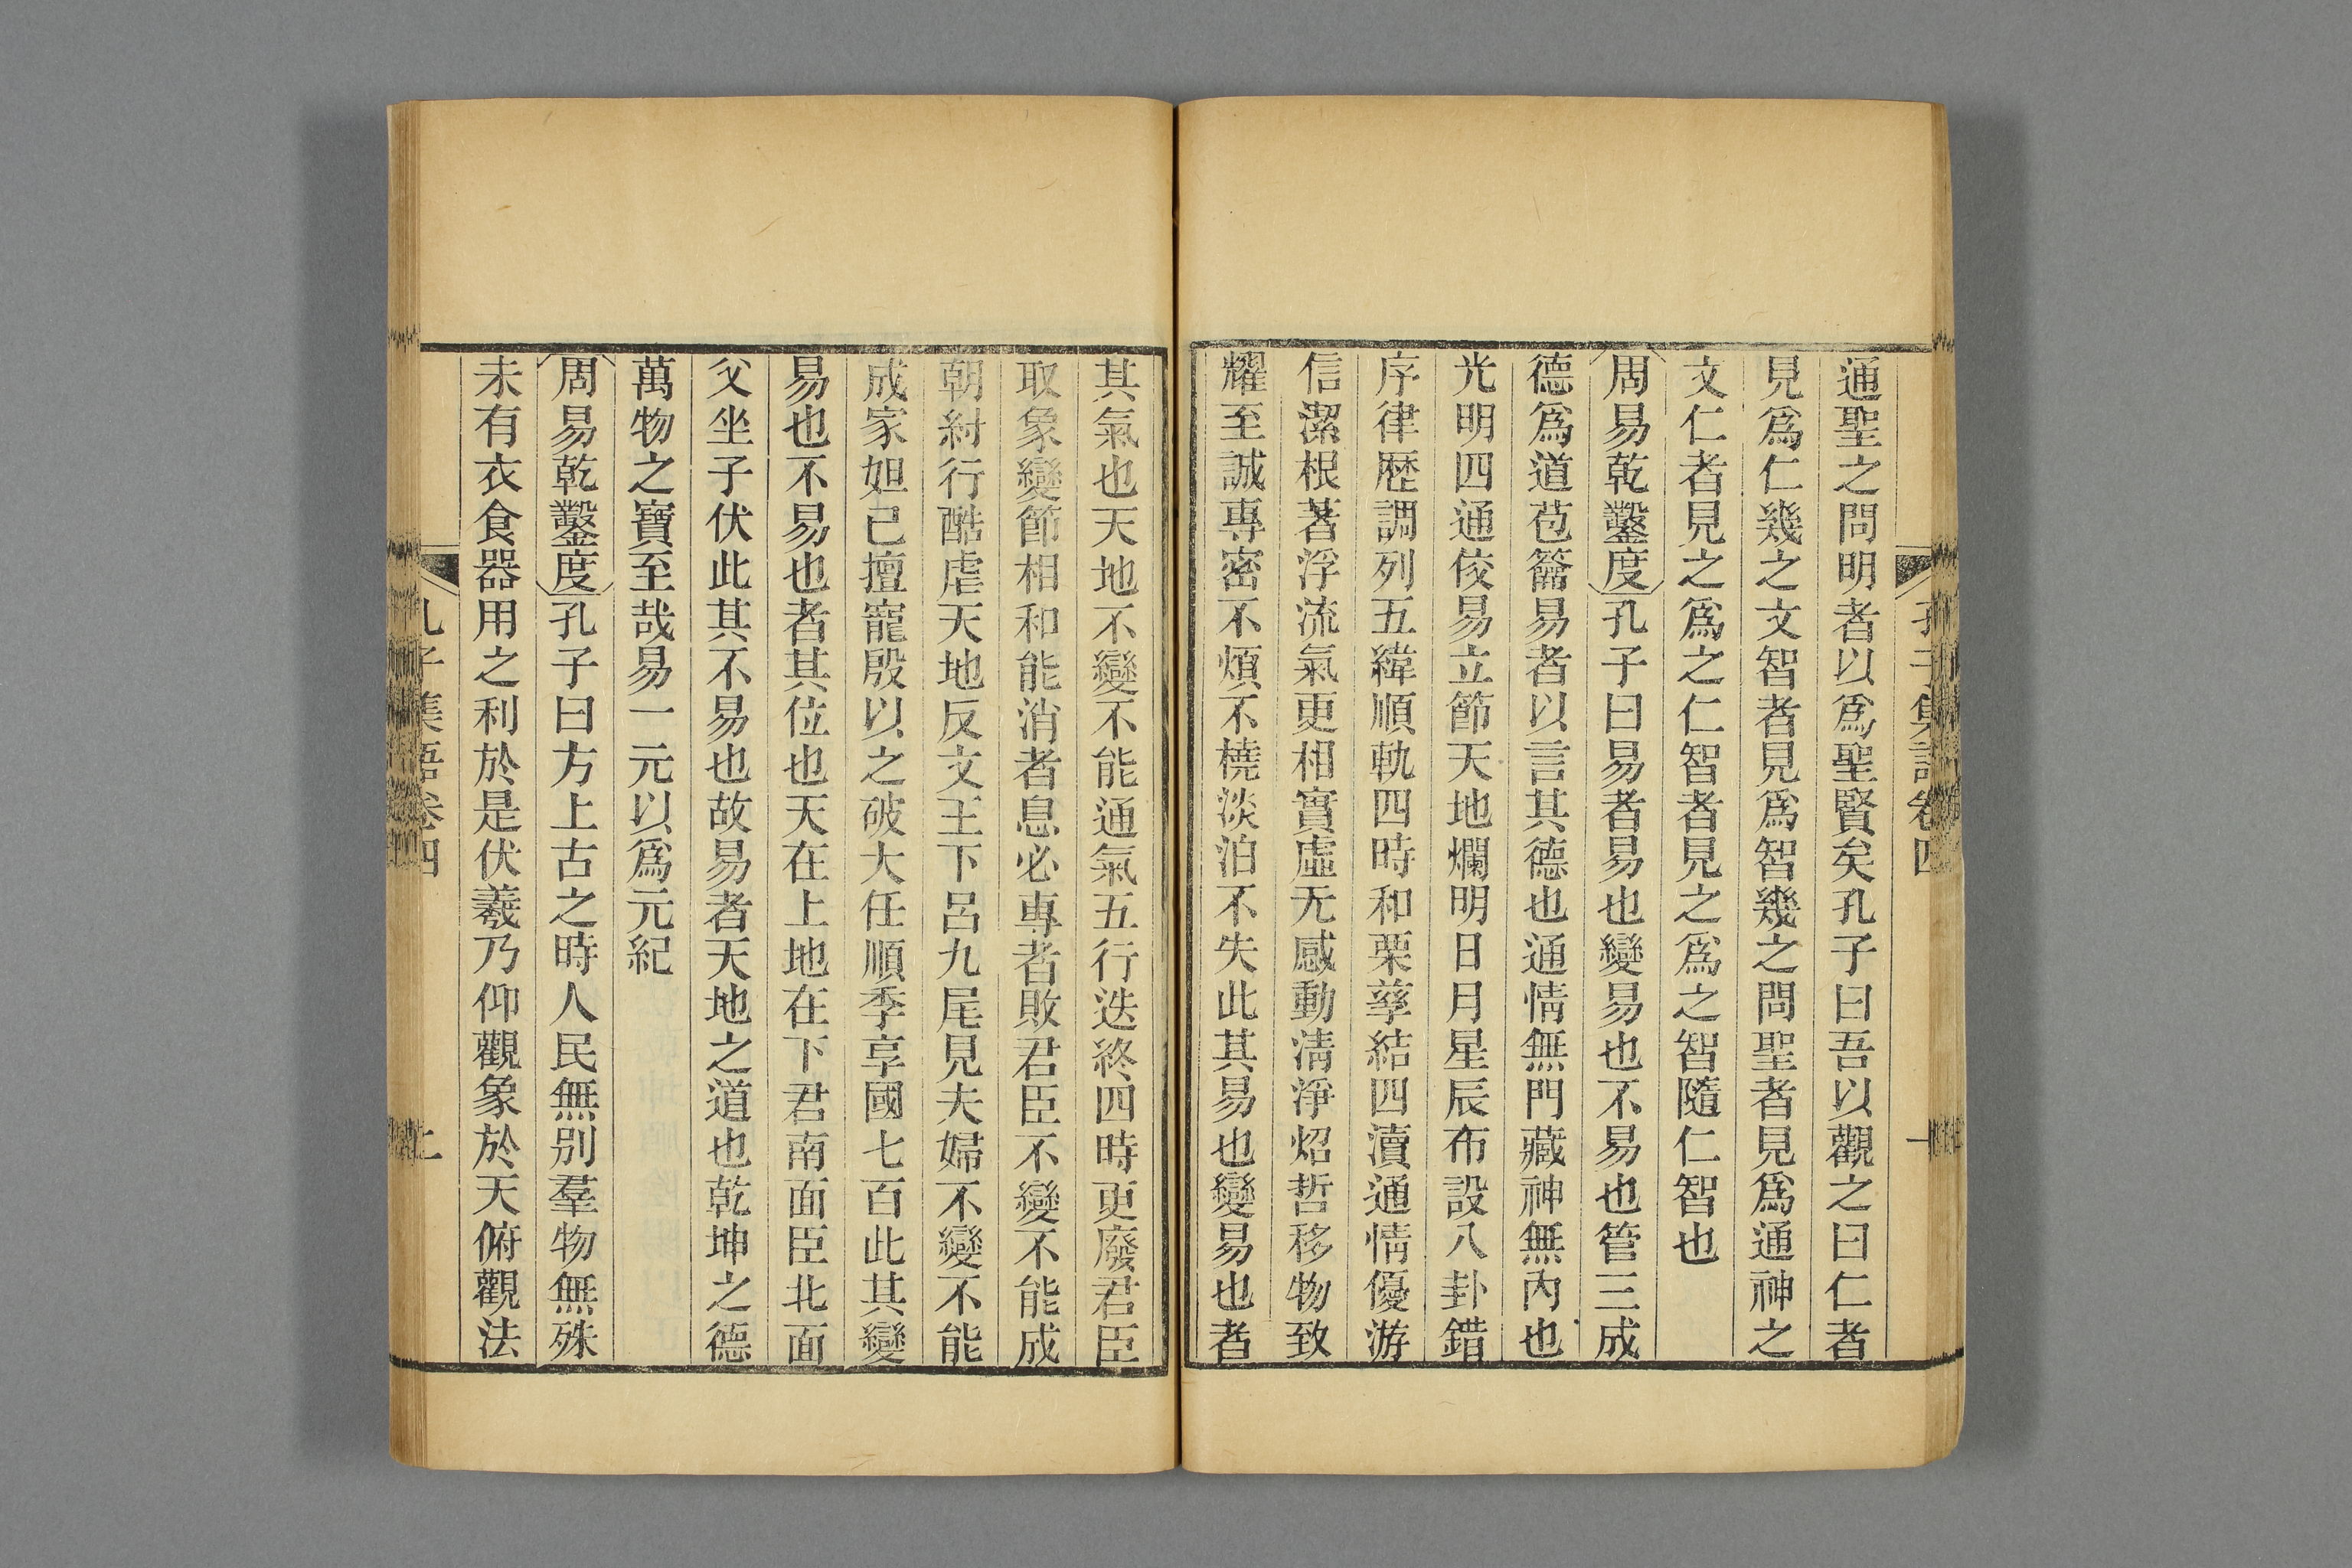 孔子集語卷四
通聖之問明者以爲聖賢矣孔子曰吾以觀之曰仁者
見爲仁幾之文智者見爲智幾之問聖者見爲通神之
文仁者見之爲之仁智者見之爲之智隨仁智也
周易乾鑿度孔子曰易者易也變易也不易也管三成
德爲道苞籥易者以言其德也通情無門藏神無內也
光明四通佼易立節天地爛明日月星辰布設八卦錯
序律歷調列五緯順軌四時和栗孳結四瀆通情優游
信潔根荖浮流氣更相實虛无感動淸淨炤哲移物致
耀至誠專密不煩不橈淡泊不失此其易也變易也者
其氣也天地不變不能通氣五行迭終四時更廢君臣
取象變節相和能消者息必專者敗君臣不變不能成
朝紂行酷虐天地反文王下呂九尾見夫婦不變不能
成家妲己擅寵殷以之破大任順季享國七百此其變
易也不易也者其位也天在上地在下君南面臣北面
父坐子伏此其不易也故易者天地之道也乾坤之德
萬物之寶至哉易一元以爲元紀
周易乾鑿度孔子曰方上古之時人民無别羣物無殊
未有衣食器用之利於是伏羲乃仰觀象於天俯觀法
孔子集語卷四